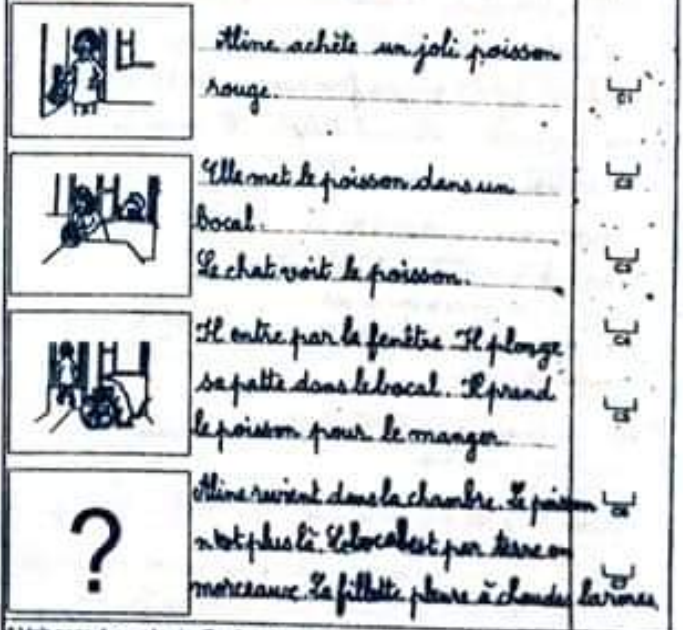 Aline achète un joli poisson
rouge.
C1
Elle met le poisson dans un
C2
bocal.
Le chat voit le poisson.
C3
Il entre par la fenêtre. Il plonge
C4
sa patte dans le bocal. Il prend
C5
le poisson pour le manger.
?
Aline revient dans la chambre. Le poisson
C6
n'est plus là. Le bocal est par terre en
C7
morceaux. La fillette pleure à chaudes larmes